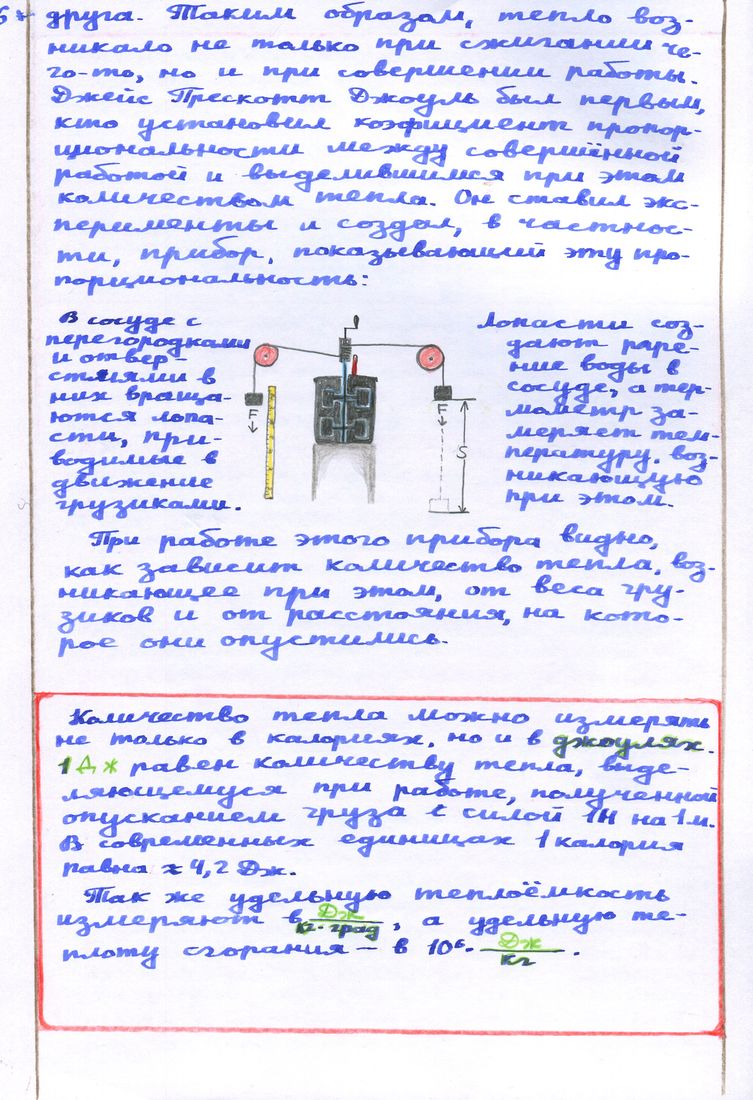 друга. Таким образом, тепло воз-
никало не только при сжигании че-
го-то, но и при совершении работы.
Джейс Прескотт Джоуль был первым,
кто установил коэфициент пропор-
циональности между совершённой
работой и выделившимся при этом
количеством тепла. Он ставил экс-
перименты и создал, в частнос-
ти, прибор, показывающий эту про-
порциональность:
В сосуде с
перегородками
и отвер-
стиями в
них враща-
ются лопа-
сти, при-
водимые в
движение
грузиками.
F
F
S
Лопасти соз-
дают
ние воды в
сосуде, а тер-
мометр за-
меряет тем-
пературу, воз-
никающую
при этом.
При работе этого прибора видно,
как зависит количество тепла, воз-
никающее при этом, от веса гру-
зиков и от расстояния, на кото-
рое они опустились.
Количество тепла можно измерять
не только в калориях, но и в джоулях.
1 Дж равен количеству тепла, выде-
ляющемуся при работе, полученной
опусканием груза с силой 1Н на 1м.
В современных единицах 1 калория
равна ≈ 4,2 Дж.
Так же удельную теплоёмкость
измеряют в Дж/кг·град, а удельную те-
плоту сгорания — в 10⁶· Дж/кг.